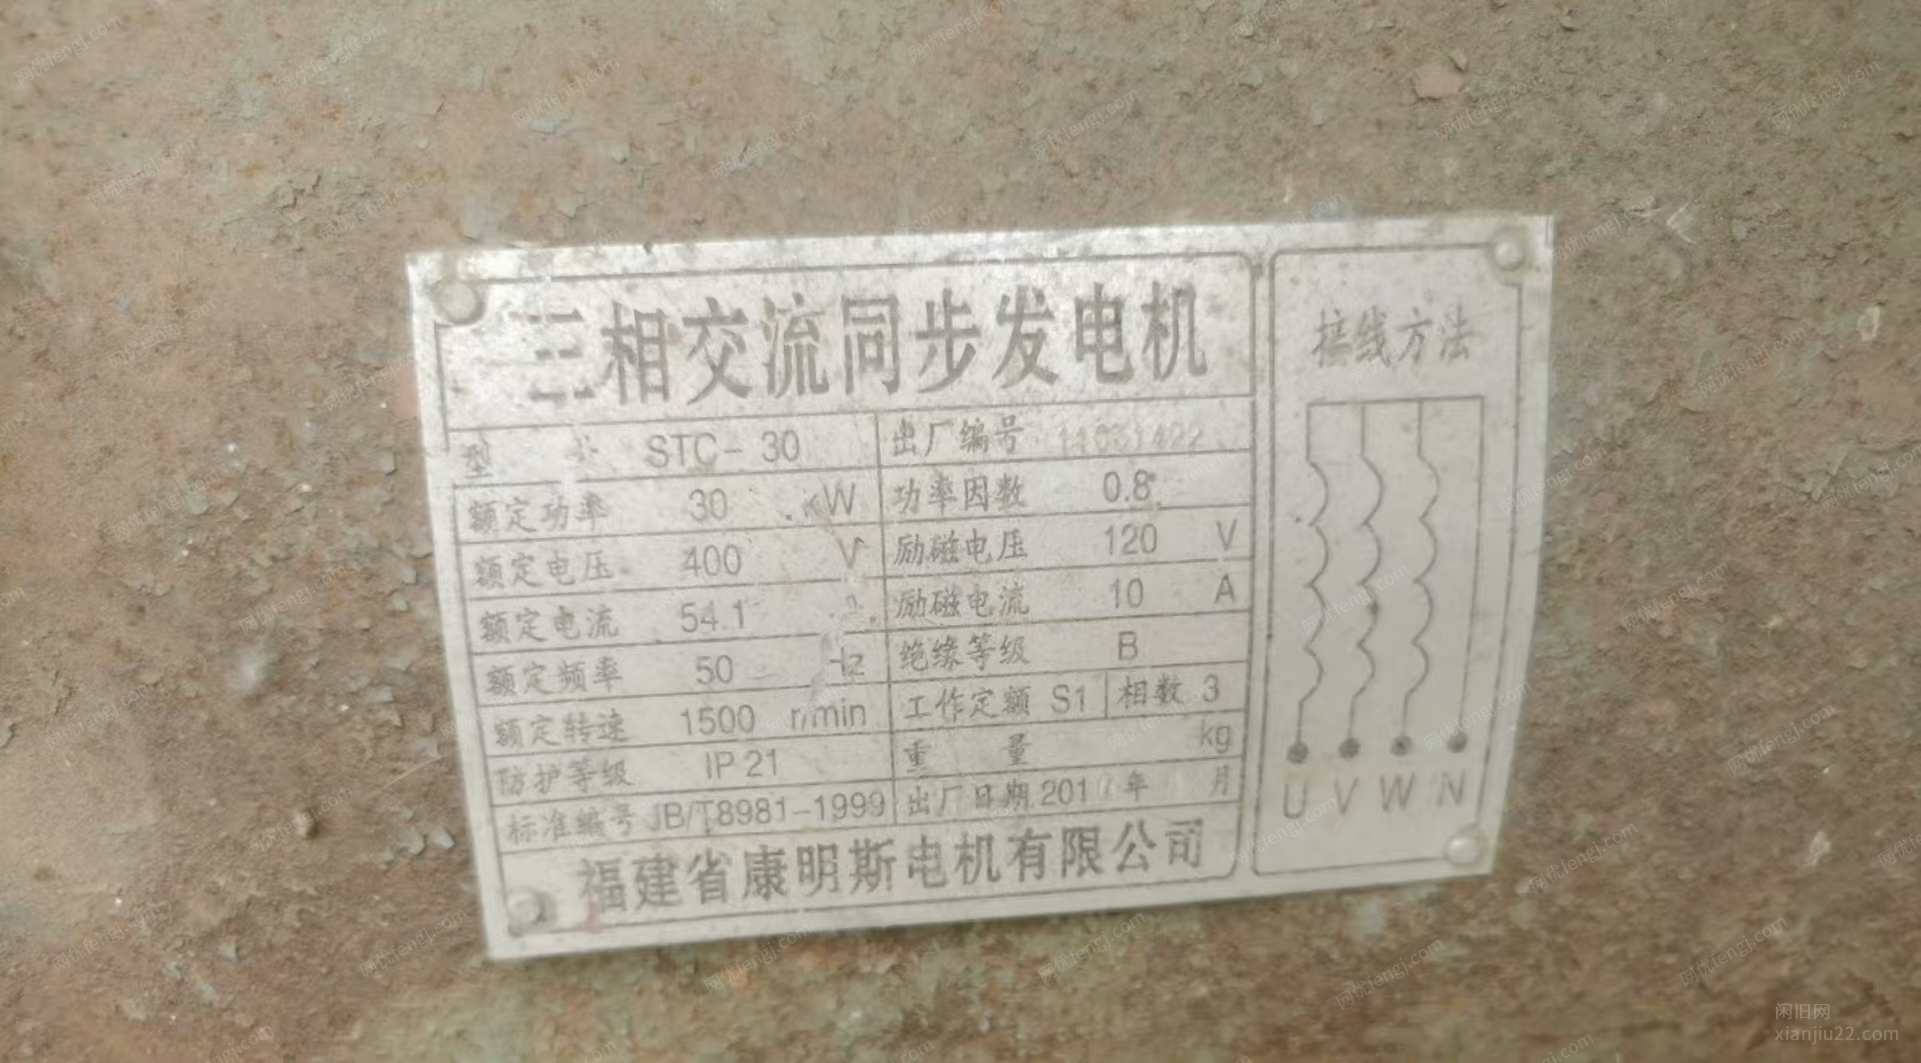 三相交流同步发电机
接线方法
型 STC-30 出厂编号
额定功率 30 kW 功率因数 0.8
额定电压 400 V 励磁电压 120 V
额定电流 54.1 励磁电流 10 A
额定频率 50 Hz 绝缘等级 B
额定转速 1500 r/min 工作定额 S1 相数 3
防护等级 IP21 重 量 kg
标准编号 JB/T8981-1999 出厂日期 201 年 月
福建省康明斯电机有限公司
U V W N
闲旧网
xianjiu22.com